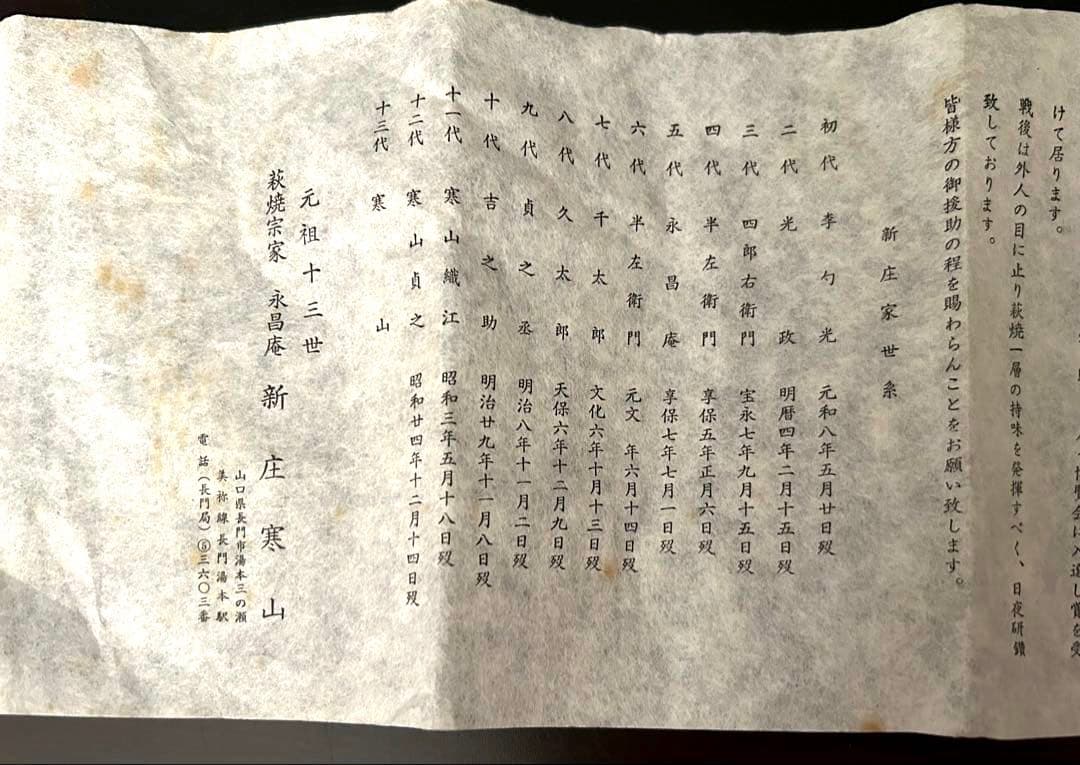 博覧会に入選し賞を受
けて居ります。
戦後は外人の目に止り萩焼一層の持味を発揮すべく、日夜研鑽
致しております。
皆様方の御援助の程を賜わらんことをお願い致します。
新庄家世系
初代 李勺光 元和八年五月廿日歿
二代 光政 明暦四年二月十五日歿
三代 四郎右衛門 宝永七年九月十五日歿
四代 半左衛門 享保五年正月六日歿
五代 永昌庵 享保七年七月一日歿
六代 半左衛門 元文 年六月十四日歿
七代 千太郎 文化六年十月十三日歿
八代 久太郎 天保六年十二月九日歿
九代 貞之丞 明治八年十一月二日歿
十代 吉之助 明治廿九年十一月八日歿
十一代 寒山織江 昭和三年五月十八日歿
十二代 寒山貞之 昭和廿四年十二月十四日歿
十三代 寒山
元祖十三世
萩焼宗家 永昌庵 新庄寒山
山口県長門市湯本三の瀬
美祢線長門湯本駅
電話(長門局)⑤三六〇三番